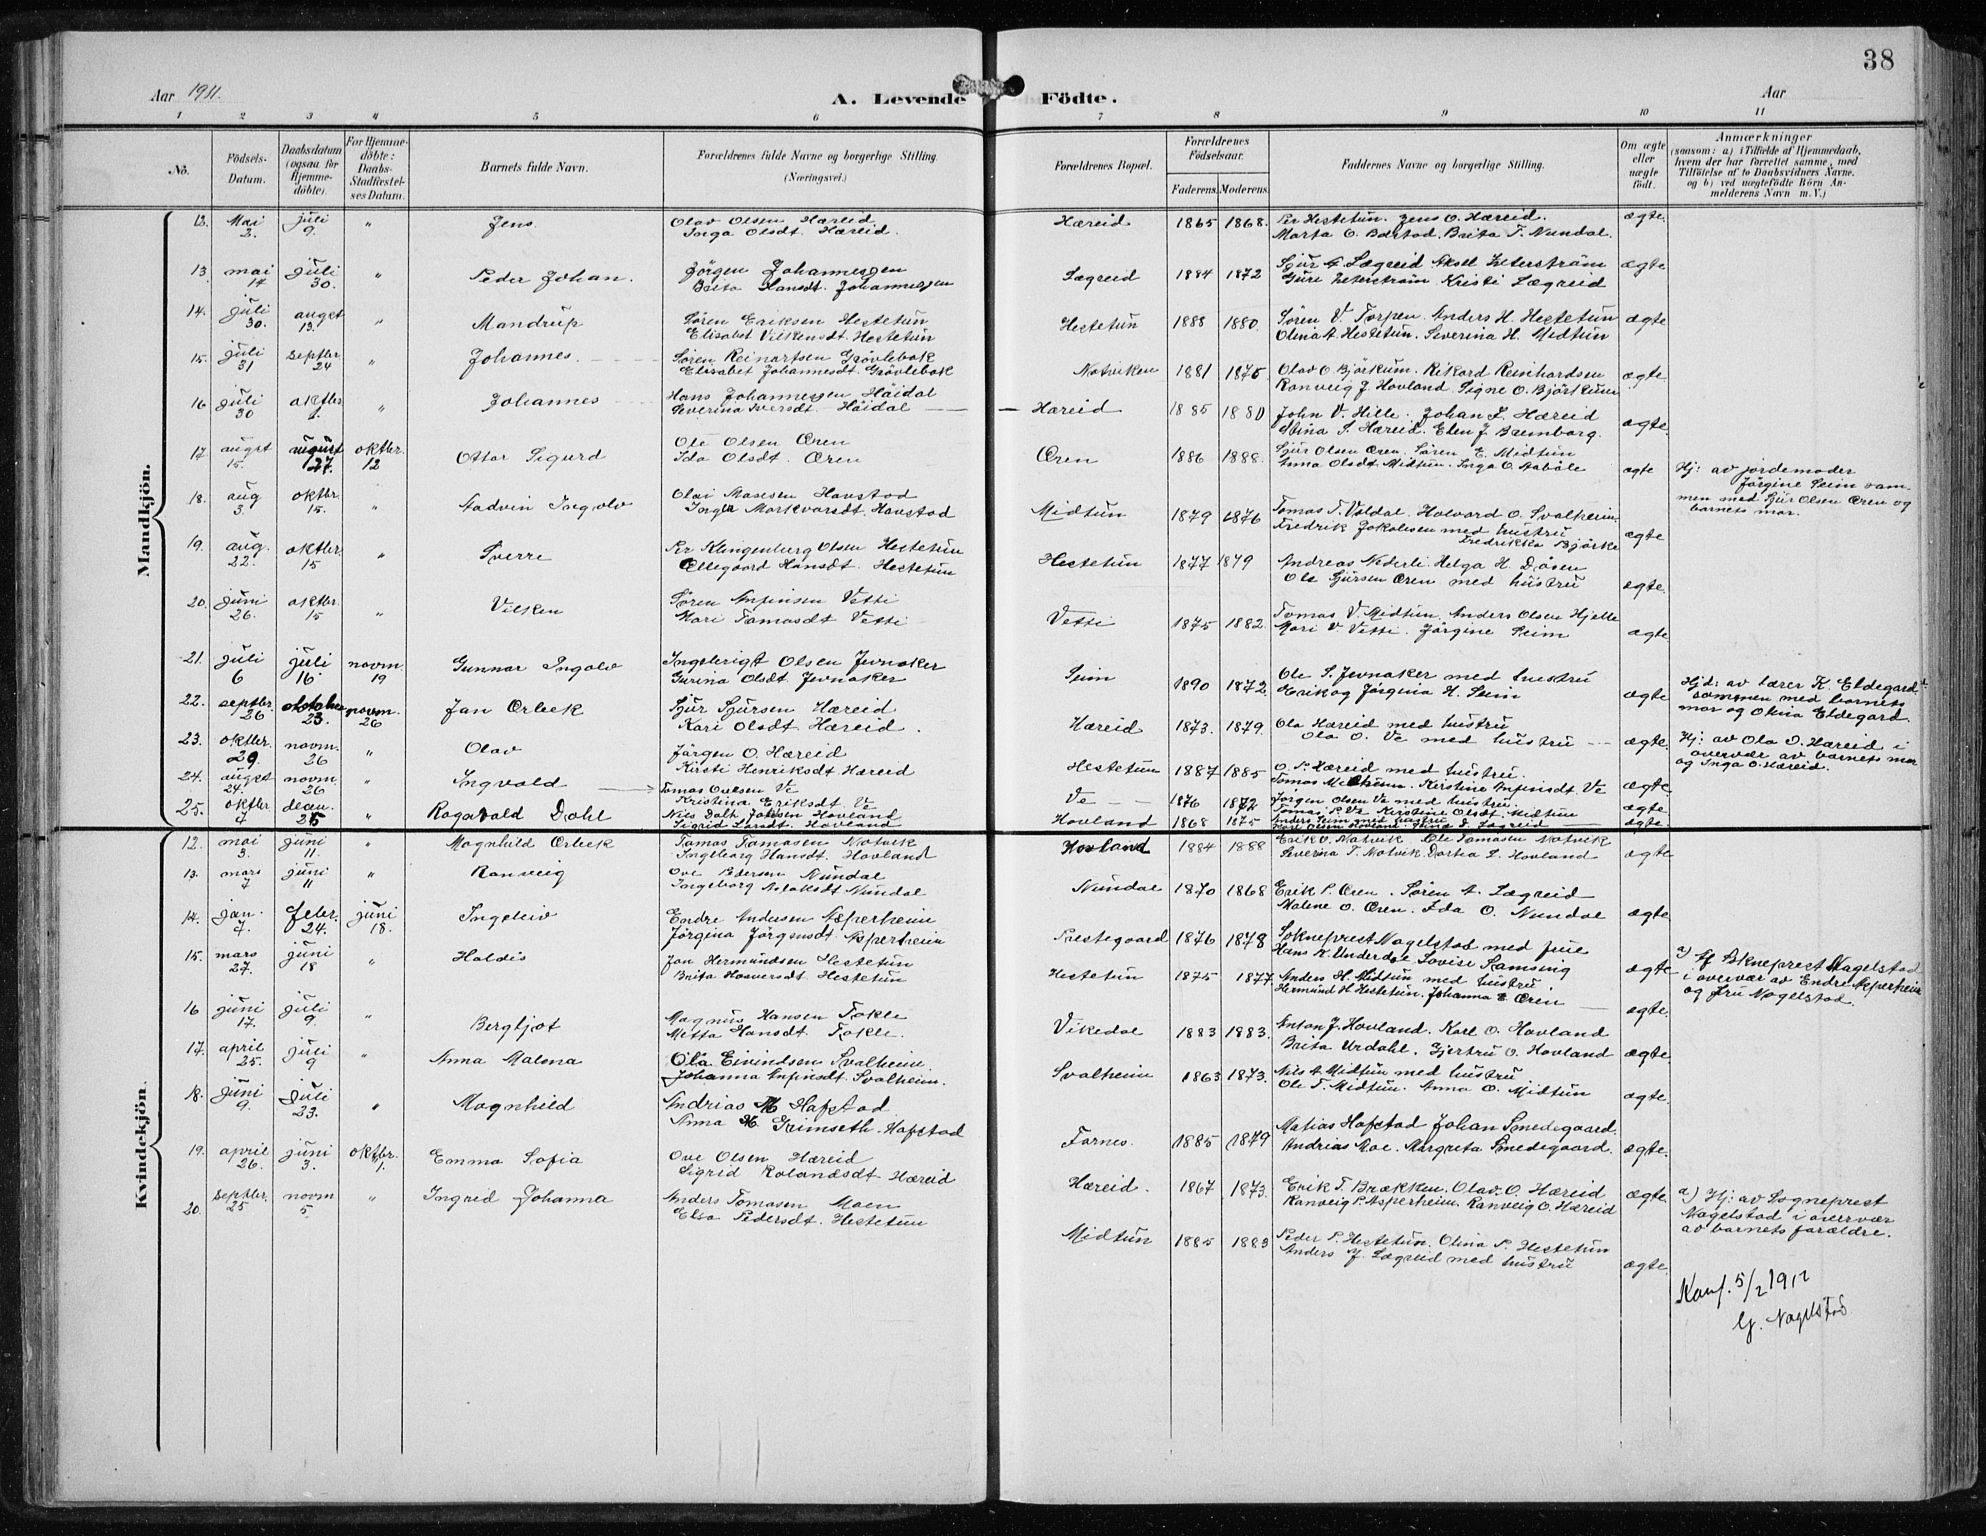 38
Aar 1911.
A. Levende Födte.
Aar
1 2 3 4 5 6 7 8 9 10 11
No.
Födsels-Datum.
Daabsdatum (ogsaa for Hjemmedöbte).
For Hjemmedöbte: Daabs-Stadfæstelses Datum.
Barnets fulde Navn.
Forældrenes fulde Navne og borgerlige Stilling. (Næringsvei.)
Forældrenes Bopæl.
Forældrenes Födselsaar.
Faderens. Moderens.
Faddernes Navne og borgerlige Stilling.
Om ægte eller uægte födt.
Anmærkninger
(saasom: a) i Tilfælde af Hjemmedaab, hvem der har forrettet samme, med Tilföielse af to Daabsvidners Navne. og b) ved uægtefödte Börn Anmelderens Navn m. V.)
Mandkjön.
12. Mai 2. juli 9. " Jens Olav Olsen Hæreid Inga Olsdt. Hæreid. Hæreid 1865 1868. Per Hestetun. Jens O. Hæreid.
Marta O. Bolstad. Brita T. Nundal. ægte.
13 mai 14 juli 30. " Peder Johan. Jörgen Johannessen Brita Hansdt. Johannessen Lægreid 1884 1872 Sjur A. Lægreid Aksel Zeterström
Guri Zeterström Kristi Lægreid ægte
14. juli 30. augst 13. " Mandrup Søren Eriksen Hestetun Elisabet Vilkensdt. Hestetun Hestetun 1888 1880. Søren V. Torpen. Anders H. Hestetun
Olina A. Hestetun. Severina H. Midtun ægte
15. juli 31 septbr 24 " Johannes. Søren Reinartsen Grøvlebak Elisabet Johannesdt. Grøvlebak Notviken 1881 1875 Olav O. Björkum. Rikard Reinhardsen
Ranveig J. Hovland. Signe O. Björkum ægte.
16 juli 30 oktbr 1. " Johannes Hans Johannessen Häidal Severina Iversdt. Häidal Hæreid 1885 1880 John V. Hille. Johan S. Hæreid
Stina S. Hæreid. Elen J. Bremborg. ægte.
17 augst 15. august 27. oktbr. 12 Ottar Sigurd Ole Olsen Øren Ida Olsdt. Øren Øren 1886 1888. Sjur Olsen Øren. Søren E. Midtun
Anna Olsdt. Midtun. Inga O. Aabøle ægte Hj: av jordemoder
Jörgine Seim sammen med Sjur Olsen Øren og
barnets mor.
18. aug 3. oktbr. 15. " Ingolv Olai Masesen Havstad Inger Markvardt. Havstad Midtun 1879 1876 Tomas T. Voldal. Halvard O. Svalheim.
Fredrik Jakobsen med hustru
Fredrikka Bjørke ægte
19. aug. 22. oktbr. 15 " Sverre Per Klingenberg Olsen Hestetun Ellegaard Hansdt. Hestetun Hestetun 1877 1879 Andreas Nederli. Helga H. Dösen
Ole Sjursen Øren med hustru ægte.
20. juni 26. oktbr. 15 " Vilken Søren Anfinsen Vetti Mari Tomasdt Vetti Vetti 1875 1882. Tomas V. Midtun. Anders Olsen Hjelle
Mari V. Vetti. Jörgine Seim ægte.
21. juli 6 juli 16. novm. 19 Gunnar Ingolv Ingebrigt Olsen Jevnaker Gurina Olsdt. Jevnaker Seim 1890 1872. Ole S. Jevnaker med hustru
Erik og Jörgina H. Seim ægte Hjd: av lærer K. Eldegard
sammen med barnets
mor og Olina Eldegard.
22. septbr. 26 oktober 23. novm. 26 Jan Orbek Sjur Sjursen Hæreid Kari Olsdt Hæreid. Hæreid 1873. 1879. Ola Hæreid med hustru
Ola O. Ve med hustru ægte. Hj: av Ola O. Hæreid i
overvær av barnets mor
og Inga O. Hæreid.
23. oktbr. 29. novm. 26 " Olav Jörgen O. Hæreid Kirsti Henriksdt Hæreid Hestetun 1887 1885 O. P. Hæreid med hustru.
Tomas Midtun. Kirstine Anfinsdt Ve ægte.
24. augst 24. novm 26 " Ingvald Tomas Ouelsen Ve Kristina Eriksdt. Ve Ve 1876 1872 Jörgen Olsen Ve med hustru.
Tomas P. Ve. Kirstine Olsdt. Midtun ægte
25. oktbr 7 decm. 25 " Ragnvald Dahl Nils Dalh Johnsen Hovland Sigrid Larsdt. Hovland Hovland 1868 1875 Anders Seim med hustru
Lægreid ægte
Kvindekjön.
12. mai 3. juni 11. " Magnhild Orbek Tomas Tomasen Natvik Ingeborg Hansdt. Hovland Hovland 1884 1888 Erik O. Natvik Ole Tomasen Natvik
Severina T. Natvik. Dortea L. Hovland ægte
13. mars 7 juni 11 " Ranveig Ove Pedersen Nundal Ingeborg Aslaksdt Nundal Nundal 1870 1868 Erik P. Øren. Søren A. Lægreid
Malene O. Øren. Ida O. Nundal ægte.
14. jan. 7. febr. 24. juni 18. Ingeleiv Endre Andersen Asperheim Jörgina Jörgensdt. Asperheim Prestegaard 1876 1878 Sokneprest Nagelstad med frue
Hans K. Underdal Lovise Ramsing ægte a) Af Sokneprest Nagelstad
i overvær av Endre Asperheim
og fru Nagelstad.
15. mars 27. juni 18 " Haldis Jan Hermundsen Hestetun Brita Haaversdt. Hestetun Hestetun 1875 1877. Anders H. Midtun med hustru
Hermund H. Hestetun. Johanna E. Øren ægte.
16 juni 17. juli 9. " Bergljot Magnus Hansen Fokle Metta Hansdt. Fokle. Vikedal 1883 1883. Anton J. Hovland. Karl O. Hovland
Brita Urdahl. Gjertru O. Hovland ægte
17. april 25. juli 9 " Anna Malena Ola Eivindsen Svalheim Johanna Anfinsdt. Svalheim. Svalheim 1863 1873. Nils A. Midtun med hustru
Ole T. Midtun. Anna O. Midtun ægte.
18. juni 9. juli 23. " Magnhild Andrias M Hafstad Anna M. Grimseth. Hafstad Fornes. 1885 1879 Matias Hafstad Johan Smedegaard.
Andrias Moe. Margreta Smedegaard. ægte.
19. april 26. juni 3. oktbr. 1. Emma Sofia Ove Olsen Hæreid Sigrid Rolandsdt Hæreid Hæreid. 1867 1873. Erik T. Brækken. Olav. O. Hæreid
Ranveig P. Asperheim. Ranveig O. Hæreid ægte
20. septbr. 25 novm 5 " Ingrid Johanna Anders Tomasen Moen Elsa Pedersdt. Hestetun Midtun 1885 1883 Peder P. Hestetun. Olina P. Hestetun
Anders J. Lægreid med hustru ægte. a) Hj: av Sogneprest
Nagelstad i overvær
av barnets forældre.
Konf. 5/2 1912
G. Nagelstad